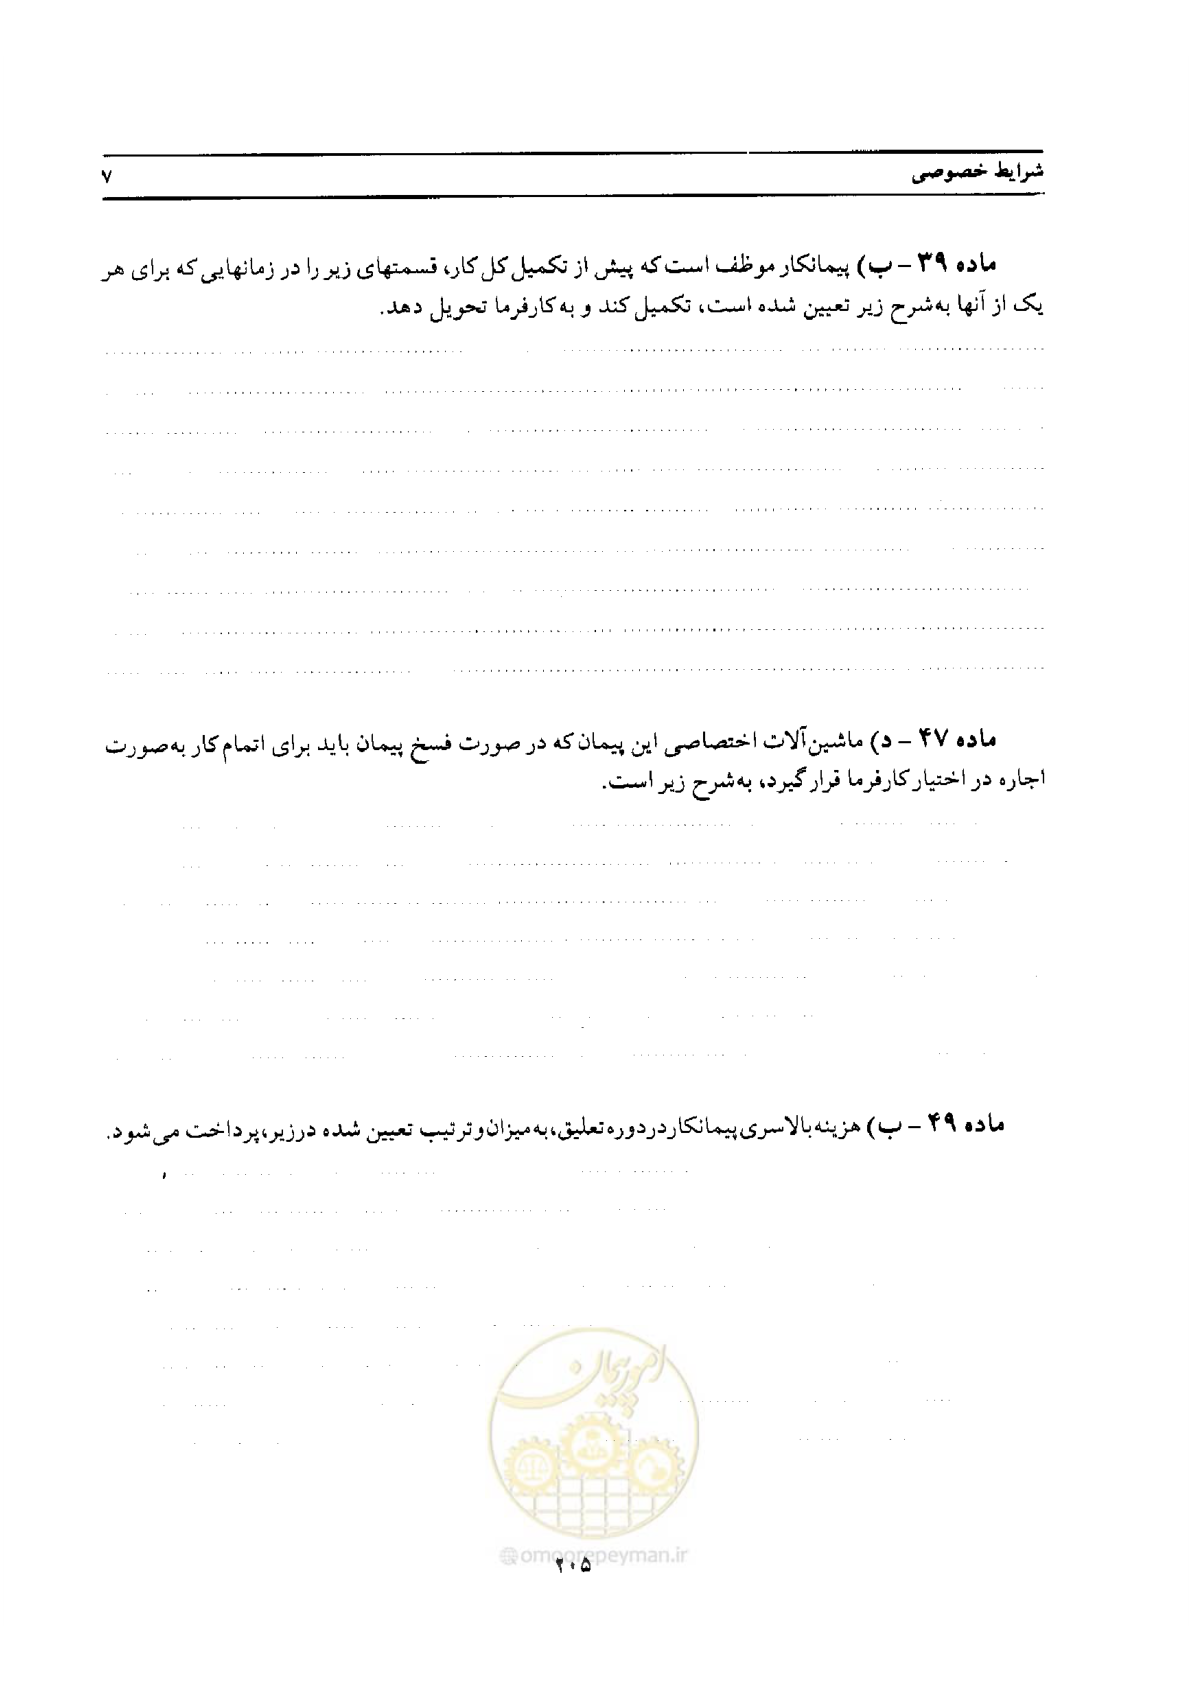 شرایط خصوصی ۷
ماده ۳۹ – ب) پیمانکار موظف است که پیش از تکمیل کل کار، قسمتهای زیر را در زمانهایی که برای هر
یک از آنها به‌شرح زیر تعیین شده است، تکمیل کند و به کارفرما تحویل دهد.
ماده ۴۷ – د) ماشین‌آلات اختصاصی این پیمان که در صورت فسخ پیمان باید برای اتمام کار به‌صورت
اجاره در اختیار کارفرما قرار گیرد، به‌شرح زیر است.
ماده ۴۹ – ب) هزینه بالاسری پیمانکار در دوره تعلیق، به میزان و ترتیب تعیین شده در زیر، پرداخت می‌شود.
امور پیمان
@omoorepeyman.ir
۲۰۵